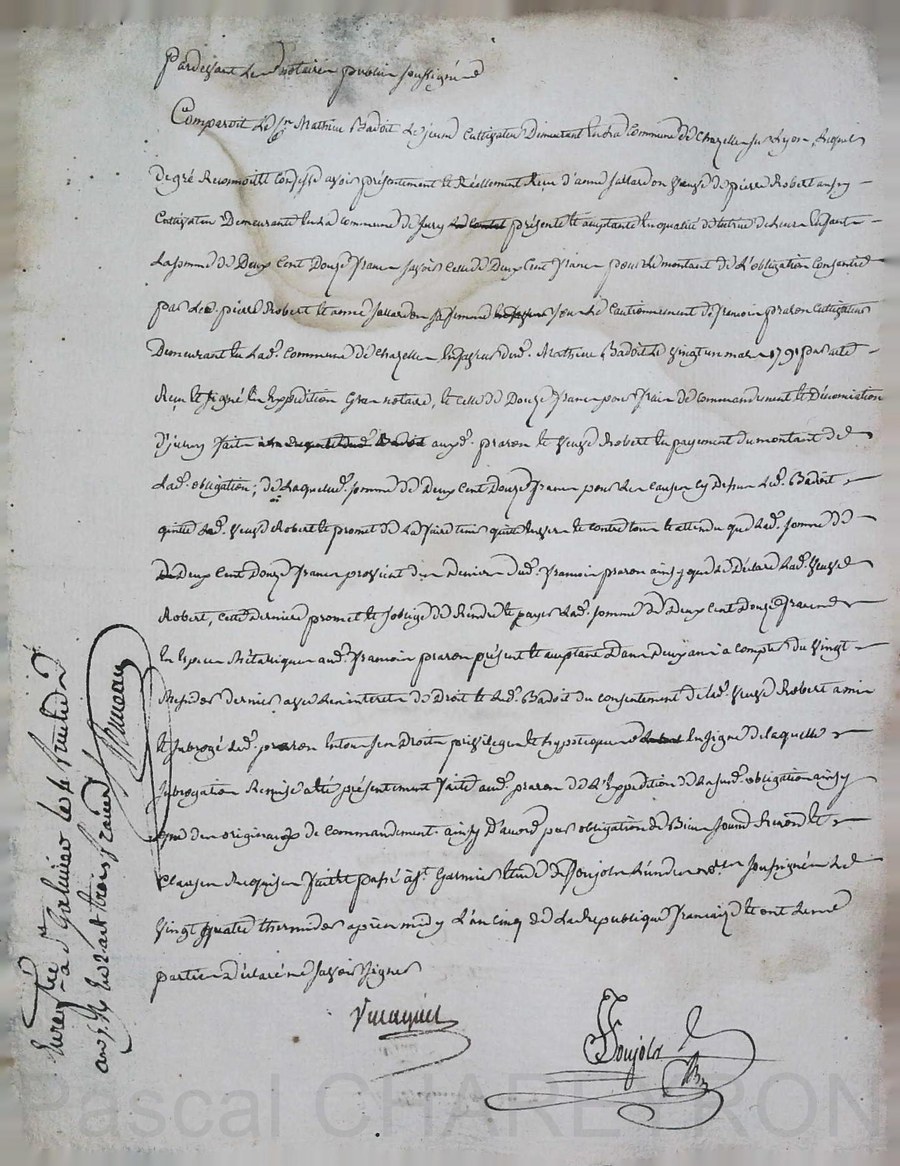 Pardevant Les notaires publics soussignés
Comparoit Le Sr Mathieu Badoit Le jeune Cultivateur Demeurant en La Commune de Chazelle sur Lyon, Lequel
de gré Reconnoit et Confesse avoir présentement et Réellement Reçu d'anne sallardon veuve de pierre Robert
Cultivateur Demeurante en La commune de présente et aceptante en qualité de tutrice de Leurs Enfants
La somme de Deux Cent Douze francs savoir Celle de Deux Cent francs pour Le montant de L'obligation Consentie
par Led. pierre Robert et anne sallardon sa femme sous Le Cautionnement de françois praron Cultivateur
Demeurant en Lad. Commune de Chazelle En faveur dud. Mathieu Badoit Le Vingt un mars 1791 par acte
Reçu et signé En Expédition Gras notaire, et celle de Douze francs pour frais de commandement et Dénonciation
d'iceux faite auxd. praron et veuve Robert En payement du montant de
Lad. obligation; de Laquelle somme de Deux Cent Douze francs pour Les Causes cy Dessus Led. Badoit
quitte Lad. Veuve Robert et promet de La faire tenir quitte Envers et contre tous et attendu que Lad. somme de
Deux Cent Douze francs provient des Deniers dud. françois praron ainsy que Le Déclare Lad. Veuve
Robert, Cette Dernière promet et s'oblige de Rendre et payer Lad. somme de Deux Cent Douze francs
En Espèces Métalliques aud. françois praron présent et aceptant Dans Deux ans à compter du Vingt
Messidor dernier avec Les interets de Droit et Led. Badoit du consentement de lad. Veuve Robert a mis
et subrogé Led. praron En tous ses Droits privilèges et hypotèques En signe de laquelle
subrogation Remise a été présentement faite aud. praron de L'Expédition de La susd. obligation ainsy
que des originaux de commandement ainsy D'acord par obligation de Biens Soumissions et
Clauses Requises fait et passé à St. Galmier Etude de Poujols L'un des nores soussignés Le
Vingt quatre thermidor après midy L'an Cinq de La Republique française et ont Les
parties Déclaré ne savoir signer
Poujols
Enregistré à St Galmier le
an 5. trois francs
Pascal CHAREYRON